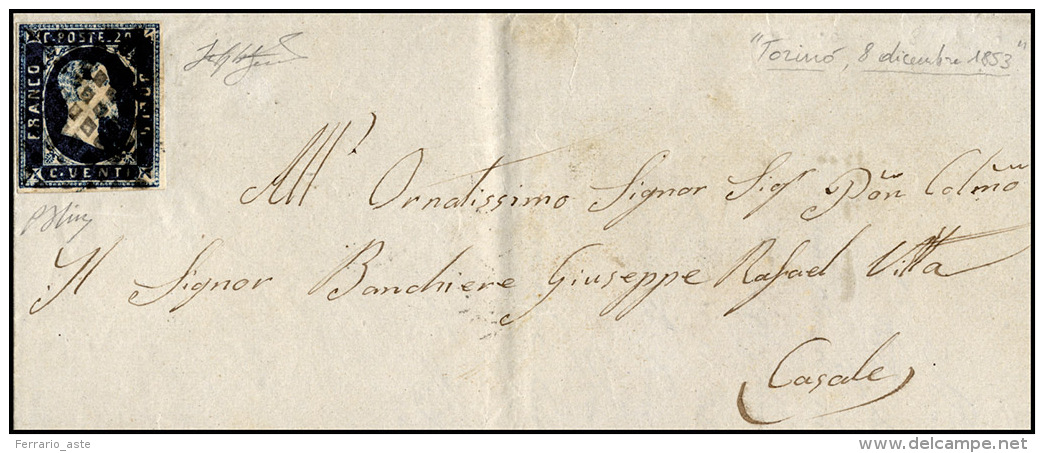 C. POSTE. 20
FRANCO
BOLLO
C. VENTI
"Torino, 8 dicembre 1853"
All' Ornatissimo Signor Sigr Pōn Colmo
Il Signor Banchiere Giuseppe Rafael Vitta
Casale
Ferrario_aste
delcampe.net